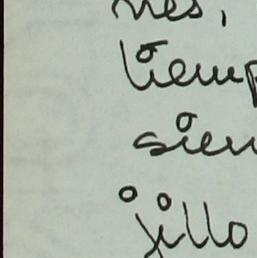 mes,
tiemp
sien
jillo